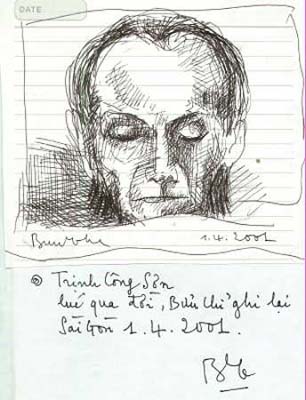 DATE
Bửu Chỉ 1.4.2001
Trịnh Công Sơn
lúc qua đời, Bửu Chỉ ghi lại
Sài Gòn 1.4.2001.